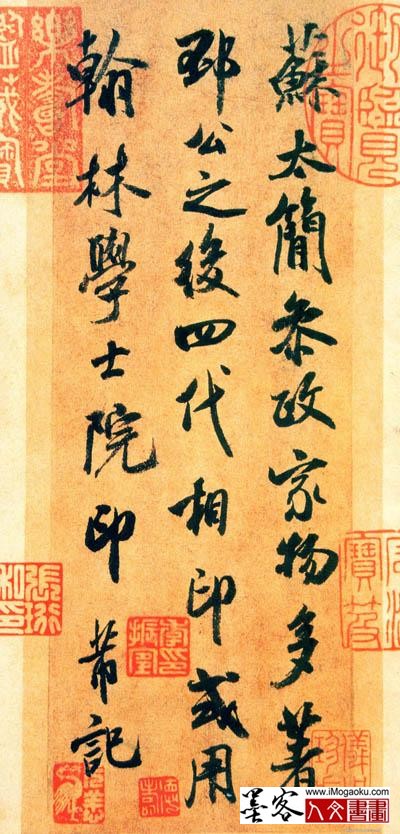 蘇太簡參政家物多著
邳公之後四代相印或用
翰林學士院印 芾記
www.iMogaoku.com
墨客 人文書畫